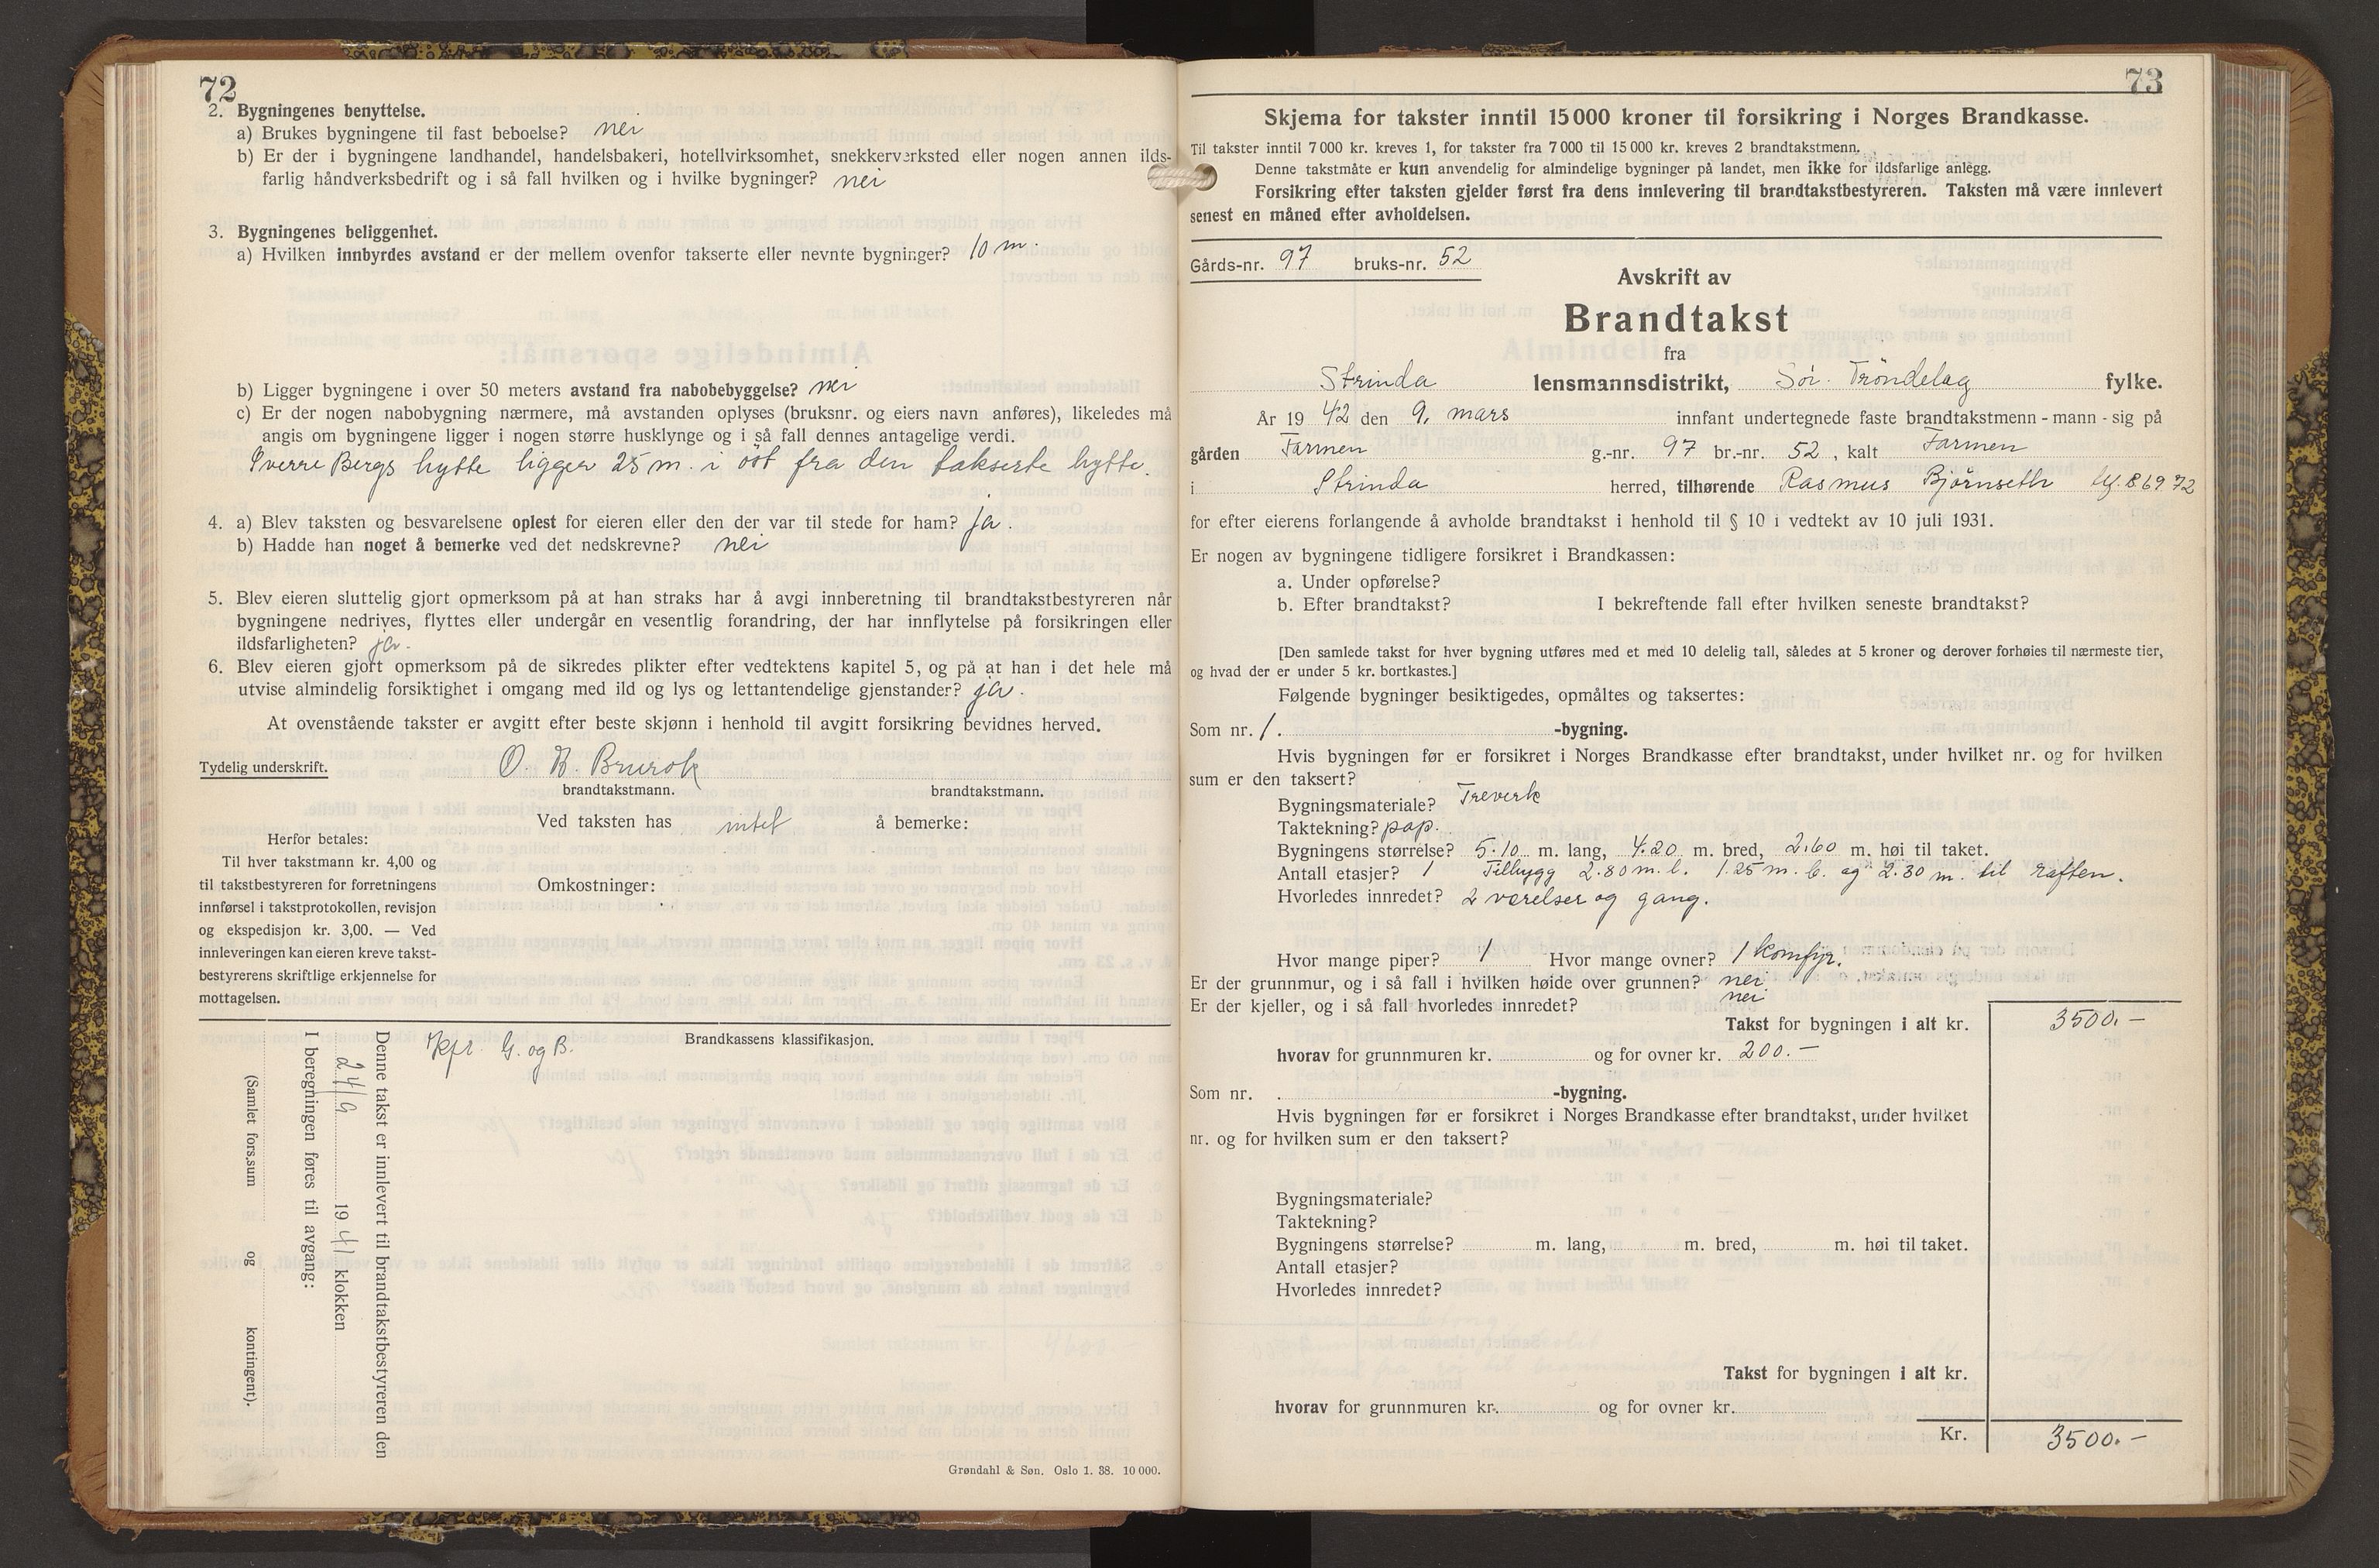 72
2. Bygningenes benyttelse.
a) Brukes bygningene til fast beboelse? nei
b) Er der i bygningene landhandel, handelsbakeri, hotellvirksomhet, snekkerverksted eller nogen annen ilds-
farlig håndverksbedrift og i så fall hvilken og i hvilke bygninger? nei
3. Bygningenes beliggenhet.
a) Hvilken innbyrdes avstand er der mellem ovenfor takserte eller nevnte bygninger? 10 m.
b) Ligger bygningene i over 50 meters avstand fra nabobebyggelse? nei
c) Er der nogen nabobygning nærmere, må avstanden oplyses (bruksnr. og eiers navn anføres), likeledes må
angis om bygningene ligger i nogen større husklynge og i så fall dennes antagelige verdi.
Sverre Bergs hytte ligger 25 m. i öst fra den takserte hytte.
4. a) Blev taksten og besvarelsene oplest for eieren eller den der var til stede for ham? ja.
b) Hadde han noget å bemerke ved det nedskrevne? nei
5. Blev eieren sluttelig gjort opmerksom på at han straks har å avgi innberetning til brandtakstbestyreren når
bygningene nedrives, flyttes eller undergår en vesentlig forandring, der har innflytelse på forsikringen eller
ildsfarligheten? ja.
6. Blev eieren gjort opmerksom på de sikredes plikter efter vedtektens kapitel 5, og på at han i det hele må
utvise almindelig forsiktighet i omgang med ild og lys og lettantendelige gjenstander? ja.
At ovenstående takster er avgitt efter beste skjønn i henhold til avgitt forsikring bevidnes herved.
Tydelig underskrift. O. H. Brurok
brandtakstmann. brandtakstmann.
Ved taksten has intet å bemerke:
Herfor betales:
Til hver takstmann kr. 4,00 og
til takstbestyreren for forretningens
innførsel i takstprotokollen, revisjon
og ekspedisjon kr. 3,00. — Ved
innleveringen kan eieren kreve takst-
bestyrerens skriftlige erkjennelse for
mottagelsen.
Omkostninger:
Brandkassens klassifikasjon.
Kfr. G. og B.
Denne takst er innlevert til brandtakstbestyreren den
24/9 1941 klokken
I beregningen føres til avgang:
(Samlet fors.sum og kontingent).
Grøndahl & Søn. Oslo 1. 38. 10 000.
73
Skjema for takster inntil 15 000 kroner til forsikring i Norges Brandkasse.
Til takster inntil 7 000 kr. kreves 1, for takster fra 7 000 til 15 000 kr. kreves 2 brandtakstmenn.
Denne takstmåte er kun anvendelig for almindelige bygninger på landet, men ikke for ildsfarlige anlegg.
Forsikring efter taksten gjelder først fra dens innlevering til brandtakstbestyreren. Taksten må være innlevert
senest en måned efter avholdelsen.
Gårds-nr. 97 bruks-nr. 52
Avskrift av
Brandtakst
fra
Strinda lensmannsdistrikt, Sör-Tröndelag fylke.
År 1942 den 9. mars innfant undertegnede faste brandtakstmenn - mann - sig på
gården Tarmen g.-nr. 97 br.-nr. 52, kalt Tarmen
i Strinda herred, tilhørende Rasmus Björnseth tlf. 86972
for efter eierens forlangende å avholde brandtakst i henhold til § 10 i vedtekt av 10 juli 1931.
Er nogen av bygningene tidligere forsikret i Brandkassen:
a. Under opførelse?
b. Efter brandtakst? I bekreftende fall efter hvilken seneste brandtakst?
[Den samlede takst for hver bygning utføres med et med 10 delelig tall, således at 5 kroner og derover forhøies til nærmeste tier,
og hvad der er under 5 kr. bortkastes.]
Følgende bygninger besiktigedes, opmåltes og taksertes:
Som nr. 1. -bygning.
Hvis bygningen før er forsikret i Norges Brandkasse efter brandtakst, under hvilket nr. og for hvilken
sum er den taksert?
Bygningsmateriale? Treverk
Taktekning? pap.
Bygningens størrelse? 5.10 m. lang, 4.20 m. bred, 2,60 m. høi til taket.
Antall etasjer? 1 Tilbygg 2.80 m. l. 1.25 m. b. og 2.30 m. til raften.
Hvorledes innredet? 2 værelser og gang.
Hvor mange piper? 1 Hvor mange ovner? 1 komfyr.
Er der grunnmur, og i så fall i hvilken høide over grunnen? nei
Er der kjeller, og i så fall hvorledes innredet? nei
Takst for bygningen i alt kr. 3500.-
hvorav for grunnmuren kr. og for ovner kr. 200.-
Som nr. . -bygning.
Hvis bygningen før er forsikret i Norges Brandkasse efter brandtakst, under hvilket
nr. og for hvilken sum er den taksert?
Bygningsmateriale?
Taktekning?
Bygningens størrelse? m. lang, m. bred, m. høi til taket.
Antall etasjer?
Hvorledes innredet?
Takst for bygningen i alt kr.
hvorav for grunnmuren kr. og for ovner kr.
Kr. 3500.-